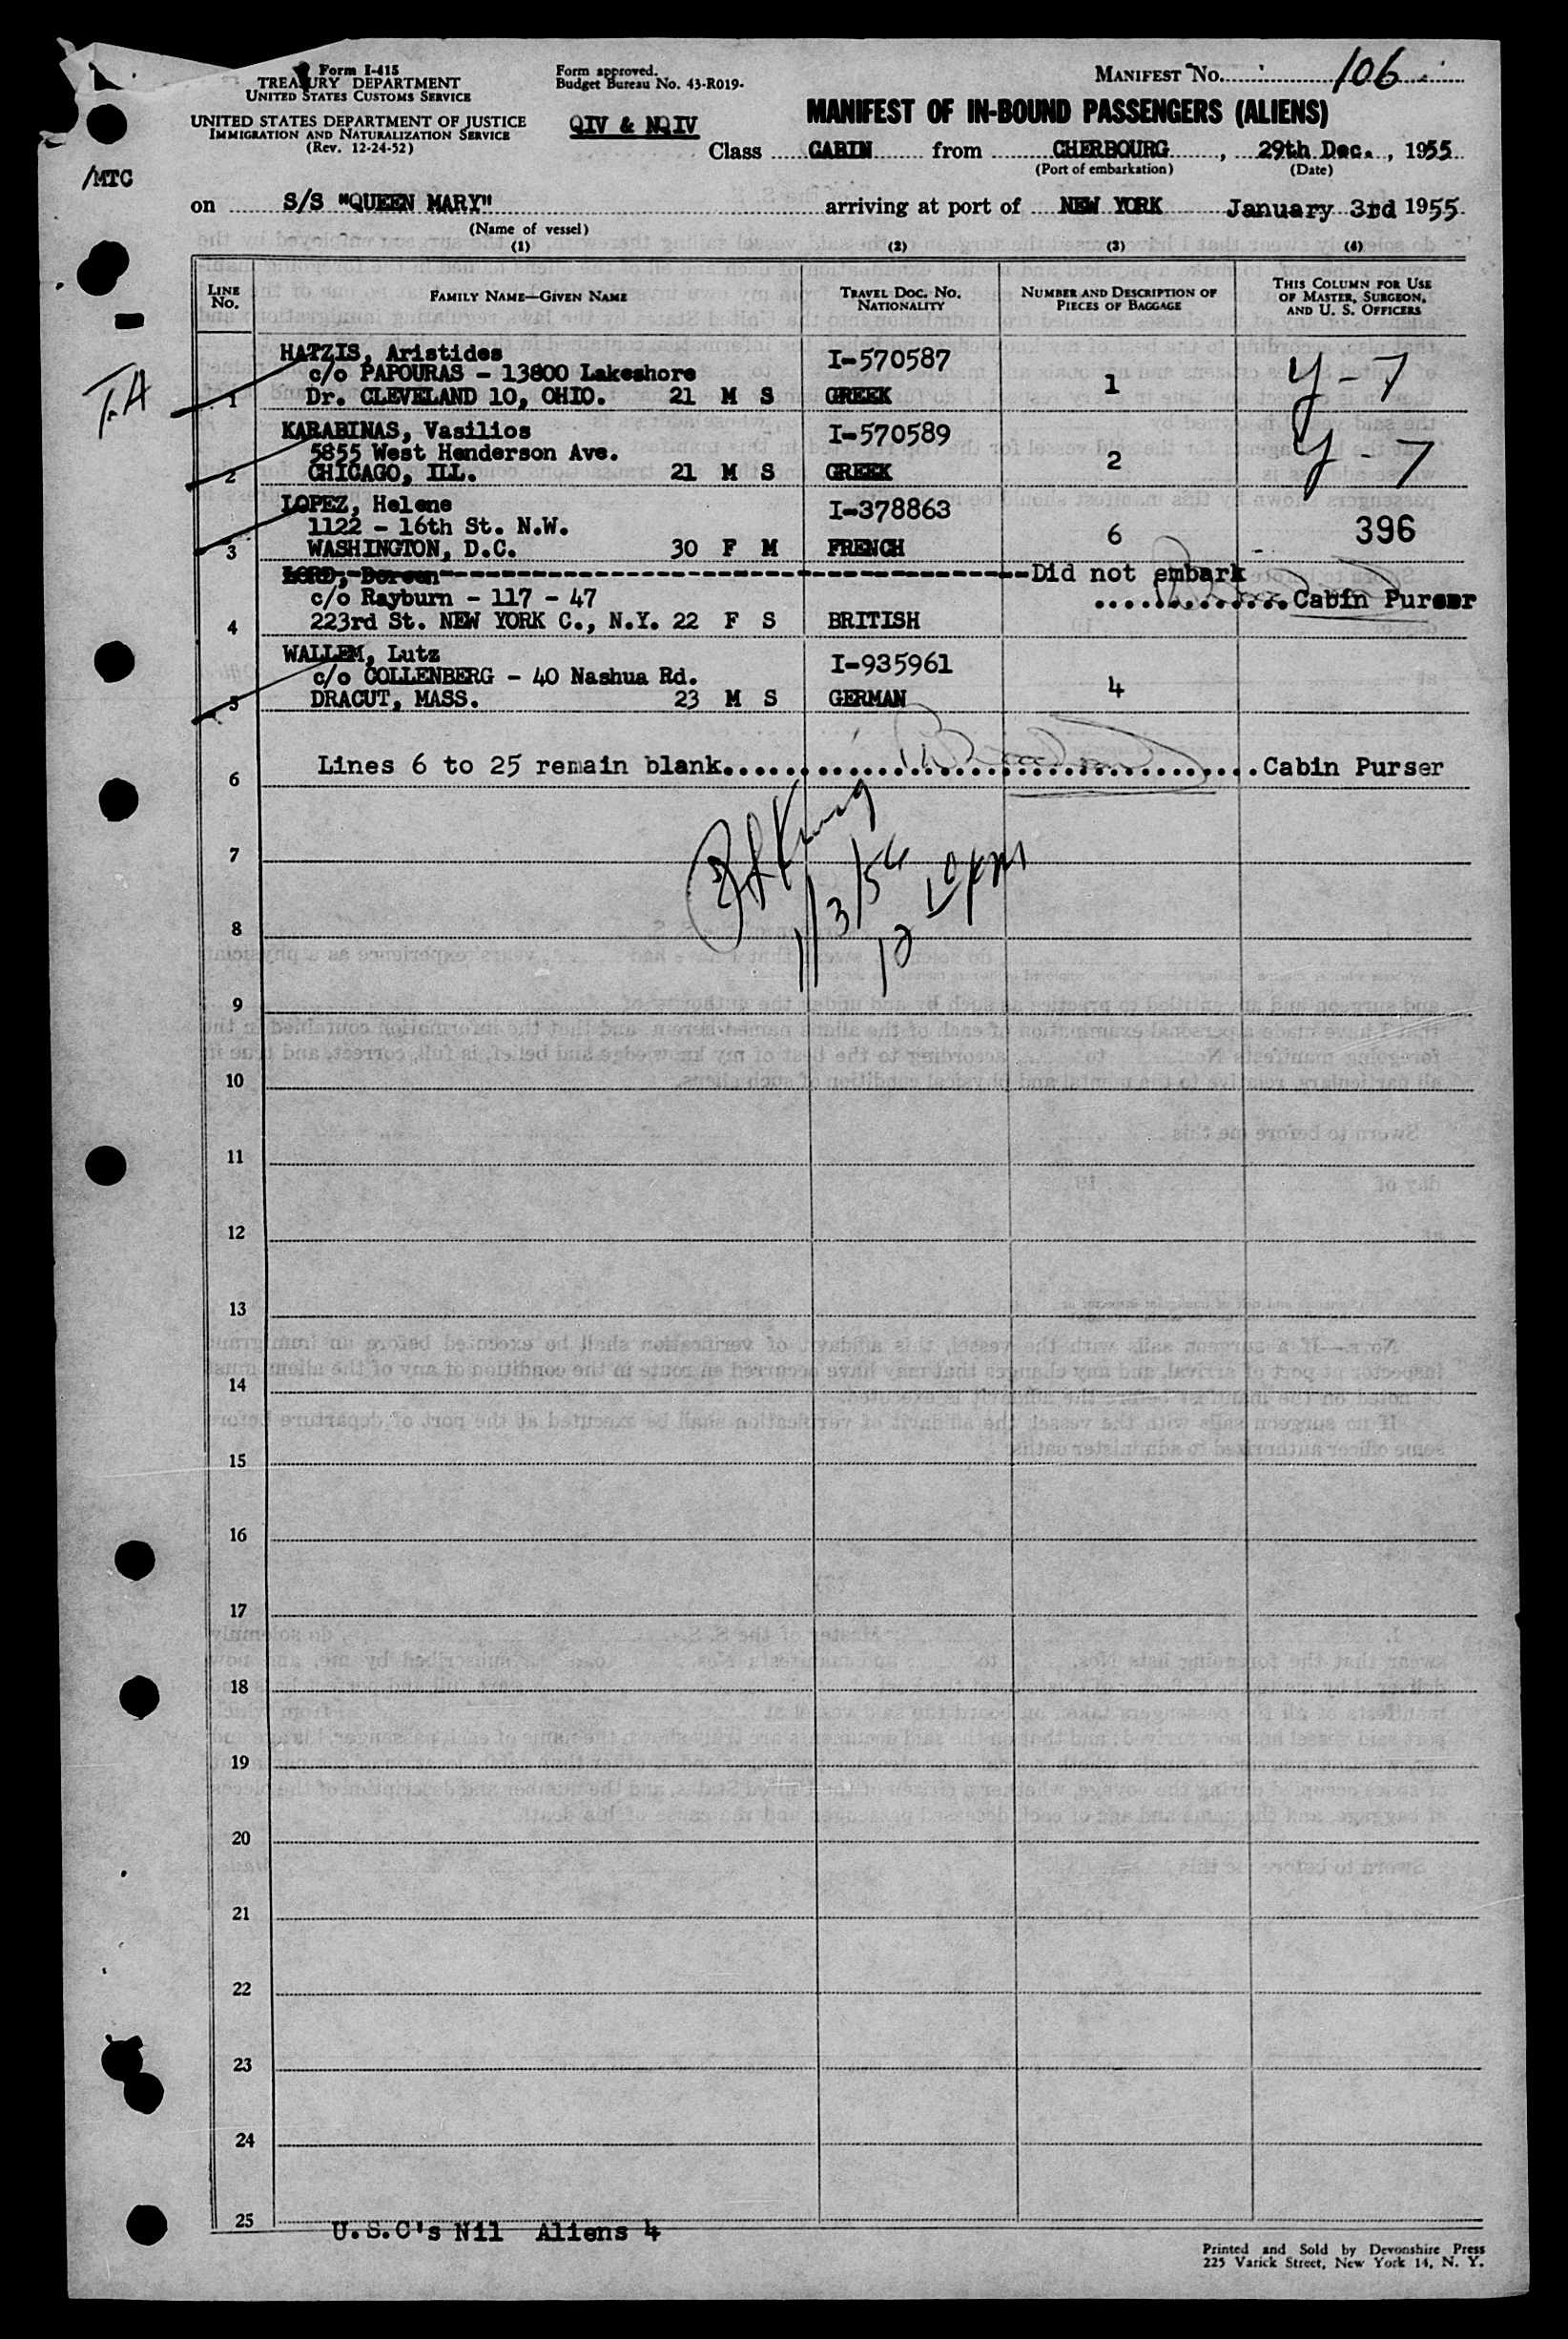 Form I-415
TREASURY DEPARTMENT
UNITED STATES CUSTOMS SERVICE
UNITED STATES DEPARTMENT OF JUSTICE
IMMIGRATION AND NATURALIZATION SERVICE
(Rev. 12-24-52)
Form approved.
Budget Bureau No. 43-R019-
MANIFEST No. 106
MANIFEST OF IN-BOUND PASSENGERS (ALIENS)
QIV & NQIV
Class CABIN from CHERBOURG, 29th Dec., 1955
(Port of embarkation) (Date)
/MTC
on S/S "QUEEN MARY" arriving at port of NEW YORK January 3rd 1955
(Name of vessel)
(1) (2) (3) (4)
LINE No. FAMILY NAME—GIVEN NAME TRAVEL DOC. NO. NATIONALITY NUMBER AND DESCRIPTION OF PIECES OF BAGGAGE THIS COLUMN FOR USE OF MASTER, SURGEON, AND U. S. OFFICERS
T.A
HATZIS, Aristides I-570587 Y-7
c/o PAPOURAS - 13800 Lakeshore
1 Dr. CLEVELAND 10, OHIO. 21 M S GREEK 1
KARABINAS, Vasilios I-570589 Y-7
5855 West Henderson Ave.
2 CHICAGO, ILL. 21 M S GREEK 2
LOPEZ, Helene I-378863
1122 - 16th St. N.W. 396
3 WASHINGTON, D.C. 30 F M FRENCH 6
LORD, Doreen Did not embark
c/o Rayburn - 117 - 47 Cabin Purser
4 223rd St. NEW YORK C., N.Y. 22 F S BRITISH
WALLEM, Lutz I-935961
c/o COLLENBERG - 40 Nashua Rd.
5 DRACUT, MASS. 23 M S GERMAN 4
Lines 6 to 25 remain blank. Cabin Purser
6
7
1/3/56
8
9
10
11
12
13
14
15
16
17
18
19
20
21
22
23
24
25
U.S.C's Nil Aliens 4
Printed and Sold by Devonshire Press
225 Varick Street, New York 14, N. Y.